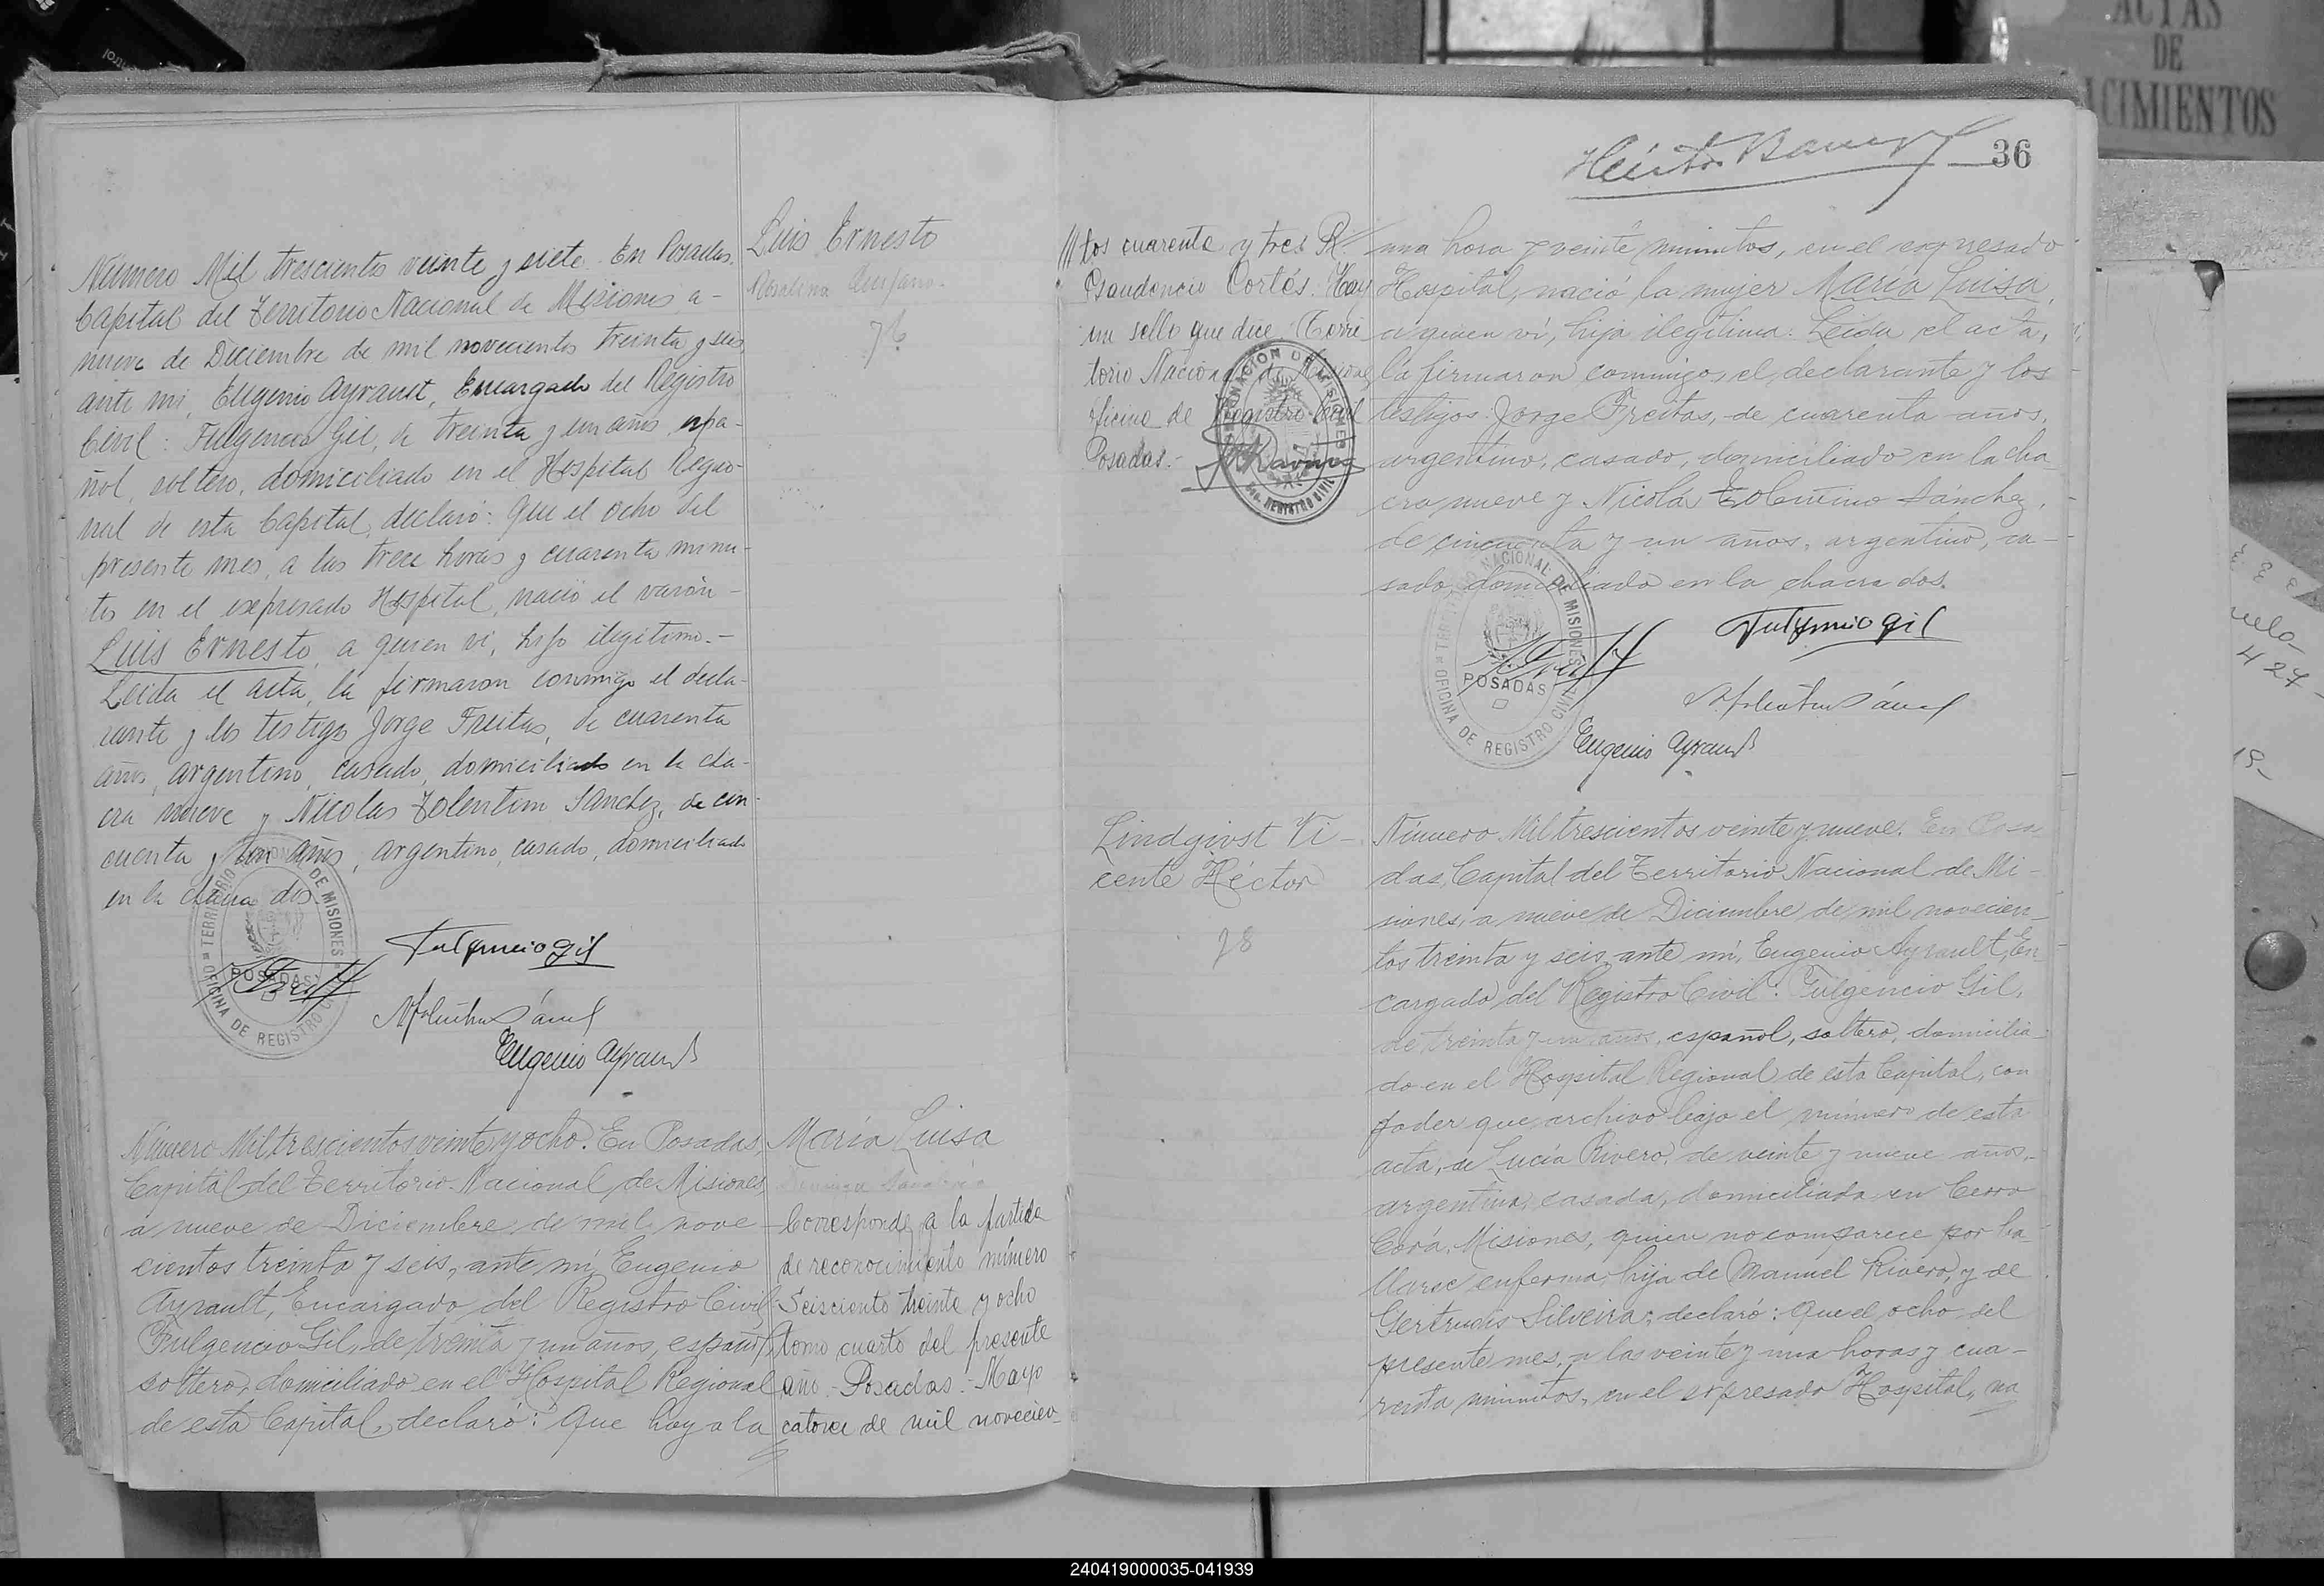 ACTAS
DE
CIMIENTOS
Número Mil trescientos veinte y siete. En Posadas,
Capital del Territorio Nacional de Misiones a-
nueve de Diciembre de mil novecientos treinta y seis,
ante mi, Eugenio Ayrault, Encargado del Registro
Civil: Fulgencio Gil, de treinta y un años, espa-
ñol, soltero, domiciliado en el Hospital Regio-
nal de esta Capital, declaró: Que el ocho del
presente mes, a las trece horas y cuarenta minu-
tos en el expresado Hospital, nació el varón-
Luis Ernesto, a quien vi, hijo ilegítimo.-
Leida el acta, la firmaron conmigo el decla-
rante y los testigos Jorge Freitas, de cuarenta
años, argentino, casado, domiciliado en la cha-
cra nueve y Nicolas Tolentino Sánchez, de cin-
cuenta y un años, argentino, casado, domiciliado
en la chacra dos.
TERRITORIO NACIONAL DE MISIONES
POSADAS
OFICINA DE REGISTRO CIVIL
Fulgencio Gil
Eugenio Ayrault
Luis Ernesto
76
Número Mil trescientos veinte y ocho. En Posadas,
Capital del Territorio Nacional de Misiones,
a nueve de Diciembre de mil nove-
cientos treinta y seis, ante mí, Eugenio
Ayrault, Encargado del Registro Civil,
Fulgencio Gil, de treinta y un años, español,
soltero, domiciliado en el Hospital Regional
de esta Capital, declaró: Que hoy a la
María Luisa
Corresponde a la partida
de reconocimiento número
Seisciento treinta y ocho
tomo cuarto del presente
año.- Posadas.- Mayo
catorce de mil novecien-
36
///tos cuarenta y tres R.
Cortés. Hay
un sello que dice: Terri
torio Nacional de Misiones
oficina de Registro Civil
Posadas.-
GOBERNACION DE MISIONES
REGISTRO CIVIL
una hora y veinte minutos, en el expresado
Hospital, nació la mujer María Luisa,
a quien ví, hija ilegítima. Leída el acta,
la firmaron conmigo, el declarante y los
testigos Jorge Freitas, de cuarenta años,
argentino, casado, domiciliado en la cha
cra nueve y Nicolás Tolentino Sánchez,
de cincuenta y un años, argentino, ca-
sado, domiciliado en la chacra dos.
TERRITORIO NACIONAL DE MISIONES
POSADAS
OFICINA DE REGISTRO CIVIL
Fulgencio Gil
Eugenio Ayrault
Lindgivst Vi-
cente Héctor
78
Número Mil trescientos veinte y nueve. En Posa
das, Capital del Territorio Nacional de Mi-
siones, a nueve de Diciembre de mil novecien-
tos treinta y seis, ante mí, Eugenio Ayrault, En
cargado del Registro Civil: Fulgencio Gil,
de treinta y un años, español, soltero, domicilia-
do en el Hospital Regional de esta Capital, con
poder que archivo bajo el número de esta
acta, de Lucía Rivero, de veinte y nueve años,-
argentina, casada, domiciliada en Cerro
Corá, Misiones, quien no comparece por ha-
llarse enferma, hija de Manuel Rivero, y de
Gertrudis Silveira; declaró: Que el ocho del
presente mes, a las veinte y una horas y cua-
renta minutos, en el expresado Hospital, na
240419000035-041939